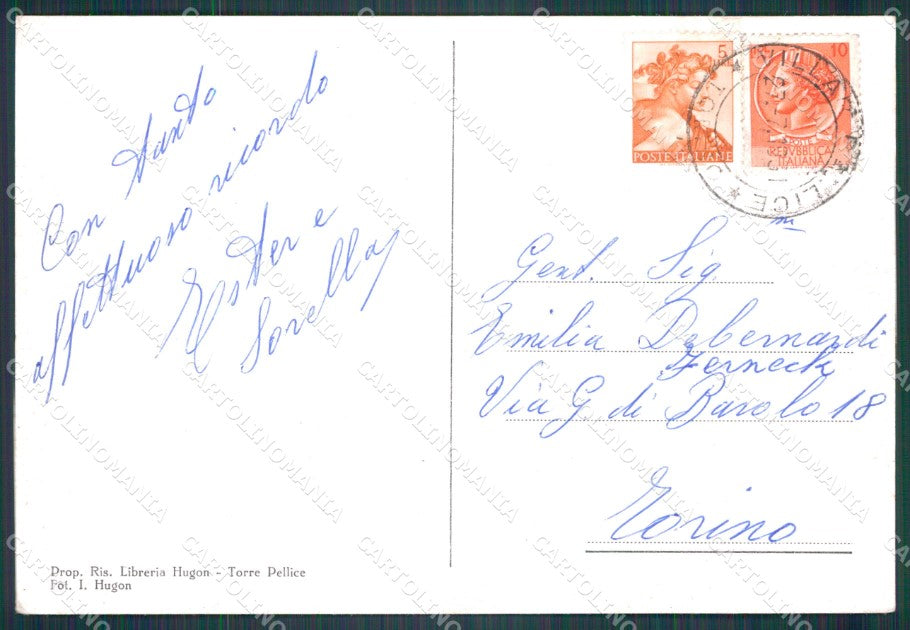 Con tanto
affettuoso ricordo
Ester e
Sorella
Prop. Ris. Libreria Hugon - Torre Pellice
Fot. I. Hugon
5
POSTE ITALIANE
10
POSTE
REPVBBLICA
ITALIANA
VILLAR PELLICE
Gent. Sig
Emilia Debernardi
Jerneck
Via G. di Barolo 18
Torino
CARTOLINOMANIA